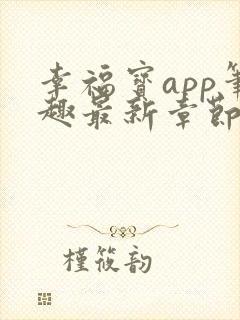 幸福宝app笔
趣最新章节
槿筱韵